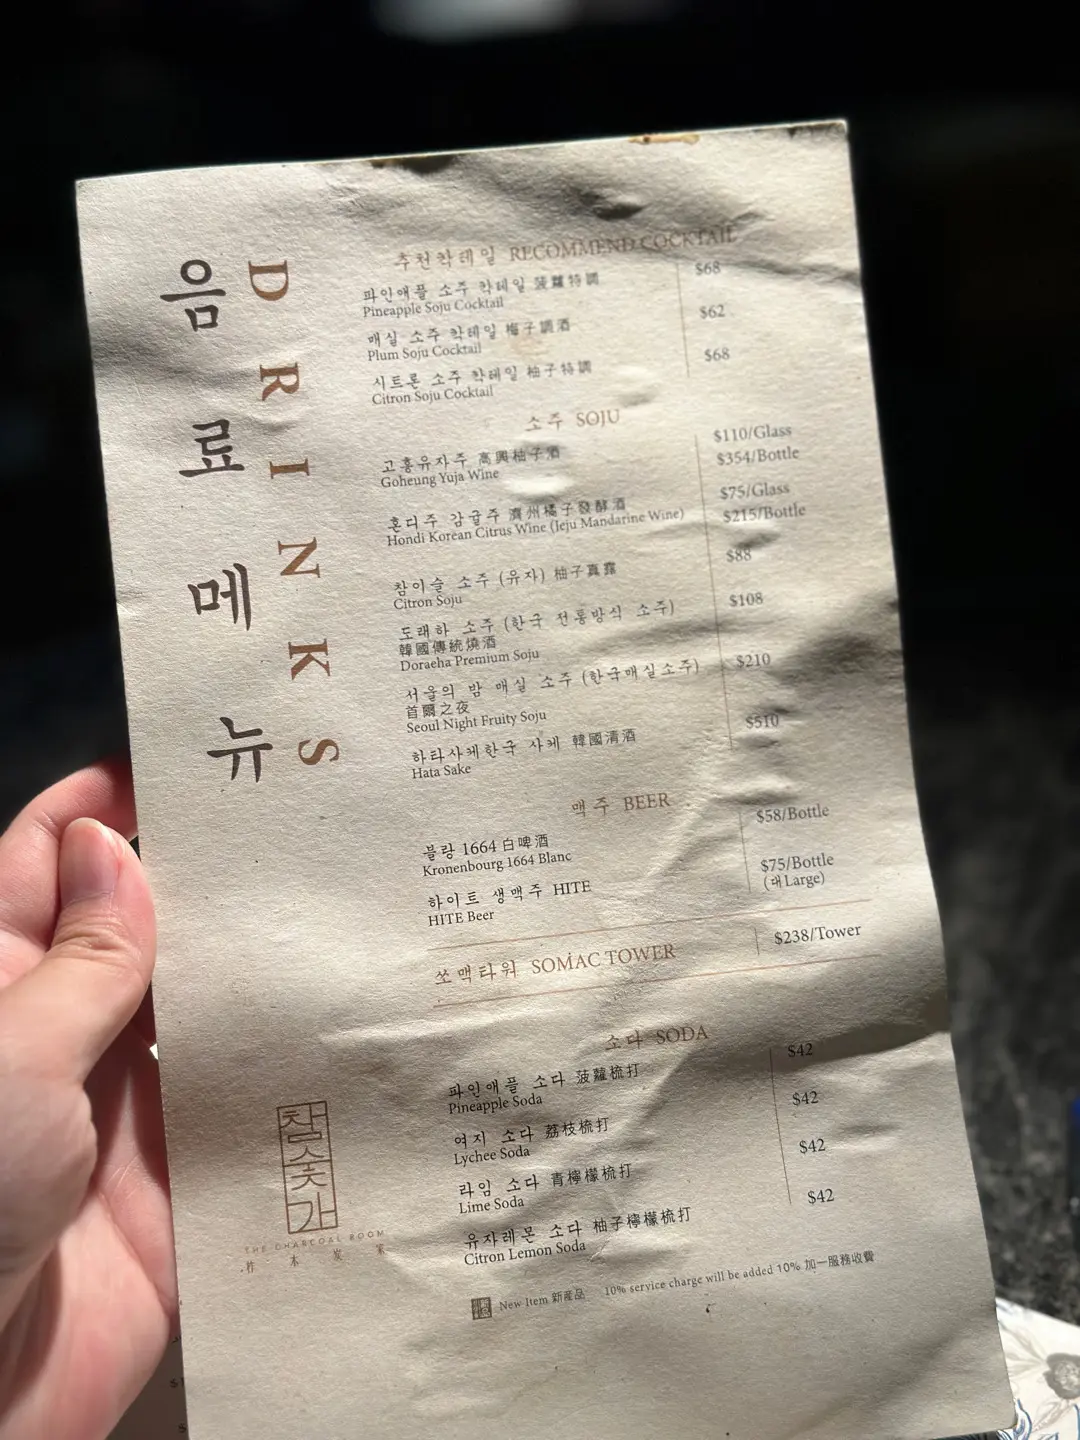 음료메뉴
DRINKS
추천칵테일 RECOMMEND COCKTAIL
파인애플 소주 칵테일 菠蘿特調
Pineapple Soju Cocktail
$68
매실 소주 칵테일 梅子調酒
Plum Soju Cocktail
$62
시트론 소주 칵테일 柚子特調
Citron Soju Cocktail
$68
소주 SOJU
고흥유자주 高興柚子酒
Goheung Yuja Wine
$110/Glass
$354/Bottle
혼디주 감귤주 濟州橘子發酵酒
Hondi Korean Citrus Wine (Jeju Mandarine Wine)
$75/Glass
$215/Bottle
참이슬 소주 (유자) 柚子真露
Citron Soju
$88
도래하 소주 (한국 전통방식 소주)
韓國傳統燒酒
Doraeha Premium Soju
$108
서울의 밤 매실 소주 (한국매실소주)
首爾之夜
Seoul Night Fruity Soju
$210
하타사케한국 사케 韓國清酒
Hata Sake
$510
맥주 BEER
블랑 1664 白啤酒
Kronenbourg 1664 Blanc
$58/Bottle
하이트 생맥주 HITE
HITE Beer
$75/Bottle
(대 Large)
쏘맥타워 SOMAC TOWER
$238/Tower
소다 SODA
파인애플 소다 菠蘿梳打
Pineapple Soda
$42
여지 소다 荔枝梳打
Lychee Soda
$42
라임 소다 青檸檬梳打
Lime Soda
$42
유자레몬 소다 柚子檸檬梳打
Citron Lemon Soda
$42
참숯가
THE CHARCOAL ROOM
炸 本 炭 家
New Item 新產品 10% service charge will be added 10% 加一服務收費